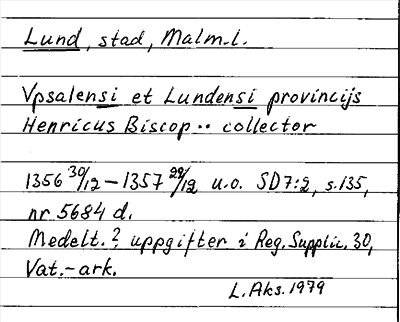 Lund, stad, Malm.l.
Vpsalensi et Lundensi provincijs
Henricus Biscop .. collector
1356 30/12 – 1357 29/12 u.o. SD7:2, s.135,
nr 5684 d.
Medelt.? uppgifter i Reg. Supplic. 30,
Vat.-ark.
L. Aks. 1979